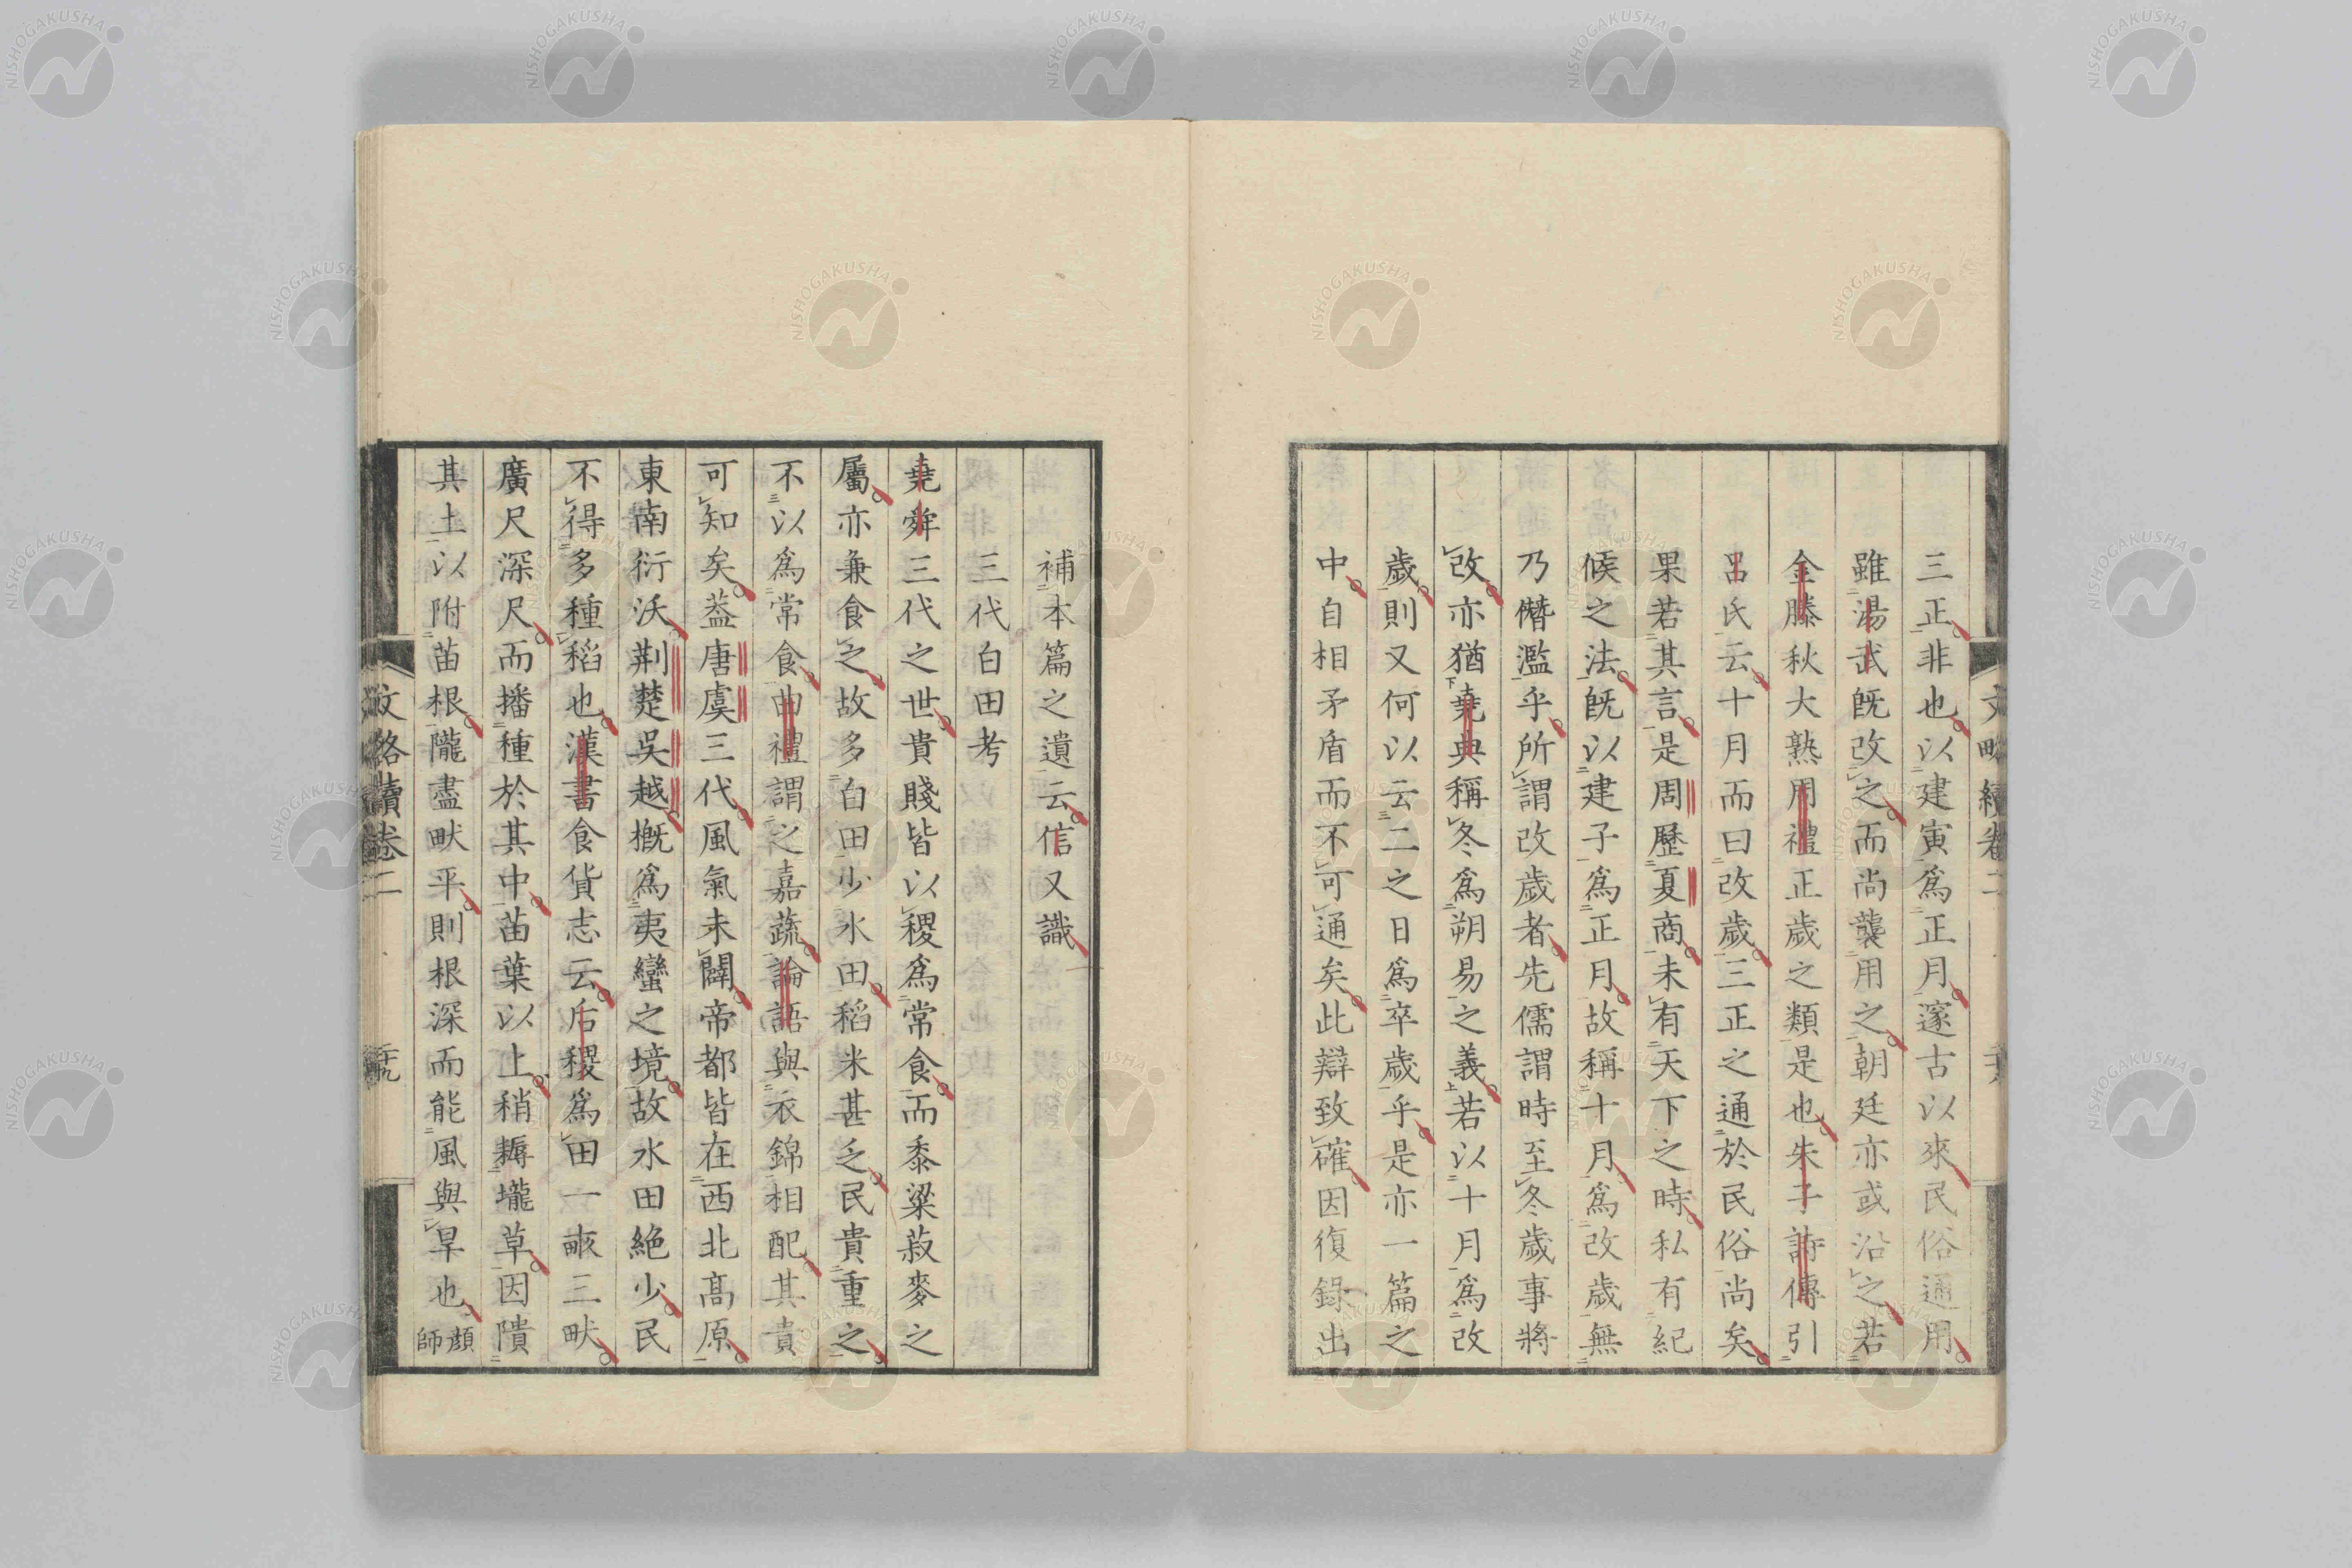 三正非也以建寅爲正月邃古以來民俗通用
雖湯武既改之而尚襲用之朝廷亦或沿之若
金縢秋大熟周禮正歲之類是也朱子詩傳引
呂氏云十月而曰改歲三正之通於民俗尚矣
果若其言是周歷夏商未有天下之時私有紀
候之法既以建子爲正月故稱十月爲改歲無
乃僭濫乎所謂改歲者先儒謂時至冬歲事將
改亦猶堯典稱冬爲朔易之義若以十月爲改
歲則又何以云二之日爲卒歲乎是亦一篇之
中自相矛盾而不可通矣此辯致確因復錄出
文略續卷二
補本篇之遺云信又識
三代白田考
堯舜三代之世貴賤皆以稷爲常食而黍粱菽麥之
屬亦兼食之故多白田少水田稻米甚乏民貴重之
不以爲常食曲禮謂之嘉蔬論語與衣錦相配其貴
可知矣葢唐虞三代風氣未闢帝都皆在西北高原
東南衍沃荆楚吳越概爲夷蠻之境故水田絕少民
不得多種稻也漢書食貨志云后稷爲田一畝三畎
廣尺深尺而播種於其中苗葉以上稍耨壠草因隤
其土以附苗根隴盡畎平則根深而能風與旱也顏師
文略續卷二
NISHOGAKUSHA